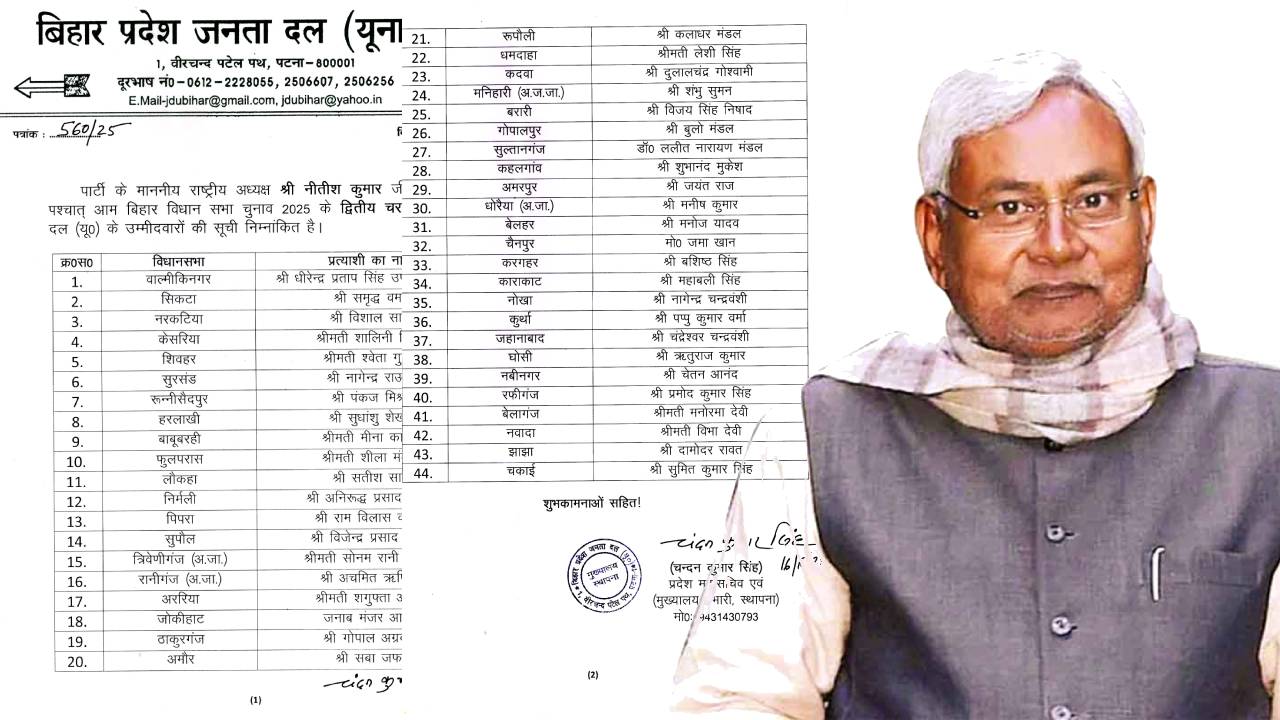 बिहार प्रदेश जनता दल (यूना
1, वीरचन्द पटेल पंथ, पटना-800001
दूरभाष नं0-0612-2228055, 2506607, 2506256
E.Mail-jdubihar@gmail.com, jdubihar@yahoo.in
पत्रांक : 560/25
पार्टी के माननीय राष्ट्रीय अध्यक्ष श्री नीतीश कुमार
पश्चात् आम बिहार विधान सभा चुनाव 2025 के द्वितीय चर
दल (यू0) के उम्मीदवारों की सूची निम्नांकित है।
क्र0स0 विधानसभा प्रत्याशी का ना
1. वाल्मीकिनगर श्री धीरेन्द्र प्रताप सिंह उ
2. सिकटा श्री समृद्ध वम
3. नरकटिया श्री विशाल सा
4. केसरिया श्रीमती शालिनी
5. शिवहर श्रीमती श्वेता गु
6. सुरसंड श्री नागेन्द्र राउ
7. रून्नीसैदपुर श्री पंकज मिश्र
8. हरलाखी श्री सुधांशु शेख
9. बाबूबरही श्रीमती मीना का
10. फुलपरास श्रीमती शीला मं
11. लौकहा श्री सतीश सा
12. निर्मली श्री अनिरूद्ध प्रसाद
13. पिपरा श्री राम विलास
14. सुपौल श्री विजेन्द्र प्रसाद
15. त्रिवेणीगंज (अ.जा.) श्रीमती सोनम रानी
16. रानीगंज (अ.जा.) श्री अचमित ऋषि
17. अररिया श्रीमती शगुफ्ता अ
18. जोकीहाट जनाब मंजर आ
19. ठाकुरगंज श्री गोपाल अग्र
20. अमौर श्री सबा जफ
(1)
21. रूपौली श्री कलाधर मंडल
22. धमदाहा श्रीमती लेशी सिंह
23. कदवा श्री दुलालचंद्र गोश्वामी
24. मनिहारी (अ.ज.जा.) श्री शंभु सुमन
25. बरारी श्री विजय सिंह निषाद
26. गोपालपुर श्री बुलो मंडल
27. सुल्तानगंज डॉ0 ललीत नारायण मंडल
28. कहलगांव श्री शुभानंद मुकेश
29. अमरपुर श्री जयंत राज
30. धोरैया (अ.जा.) श्री मनीष कुमार
31. बेलहर श्री मनोज यादव
32. चैनपुर मो0 जमा खान
33. करगहर श्री बशिष्ठ सिंह
34. काराकाट श्री महाबली सिंह
35. नोखा श्री नागेन्द्र चन्द्रवंशी
36. कुर्था श्री पप्पु कुमार वर्मा
37. जहानाबाद श्री चंद्रेश्वर चन्द्रवंशी
38. घोसी श्री ऋतुराज कुमार
39. नबीनगर श्री चेतन आनंद
40. रफीगंज श्री प्रमोद कुमार सिंह
41. बेलागंज श्रीमती मनोरमा देवी
42. नवादा श्रीमती विभा देवी
43. झाझा श्री दामोदर रावत
44. चकाई श्री सुमित कुमार सिंह
शुभकामनाओं सहित!
(चन्दन कुमार सिंह)
प्रदेश महासचिव एवं
(मुख्यालय प्रभारी, स्थापना)
मो0: 9431430793
मुख्यालय
स्थापना
(2)